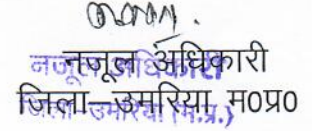 नजूल अधिकारी
जिला–उमरिया म०प्र०
नजूल अधिकारी
जिला-उमरिया (म.प्र.)